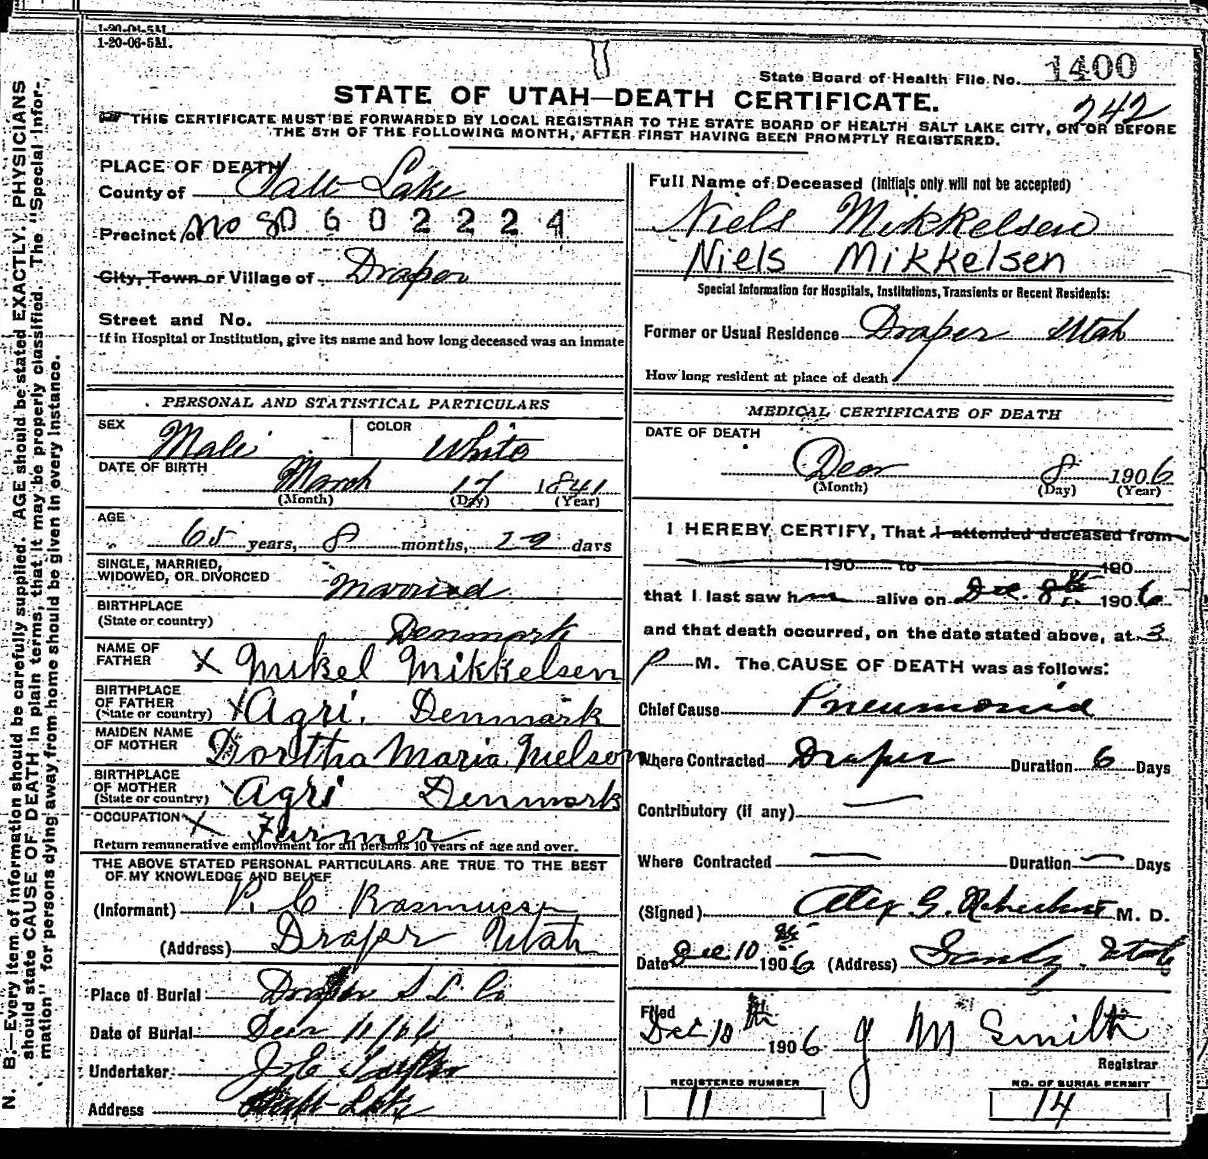 1-20-06-5M.
1-20-06-5M.
State Board of Health File No. 1400
STATE OF UTAH—DEATH CERTIFICATE.
242
THIS CERTIFICATE MUST BE FORWARDED BY LOCAL REGISTRAR TO THE STATE BOARD OF HEALTH SALT LAKE CITY, ON OR BEFORE
THE 5TH OF THE FOLLOWING MONTH, AFTER FIRST HAVING BEEN PROMPTLY REGISTERED.
N. B.—Every item of information should be carefully supplied. AGE should be stated EXACTLY. PHYSICIANS
should state CAUSE OF DEATH in plain terms, that it may be properly classified. The "Special Infor-
mation" for persons dying away from home should be given in every instance.
PLACE OF DEATH
County of Salt Lake
Precinct of No 8 0 6 0 2 2 2 4
City, Town or Village of Draper
Street and No.
If in Hospital or Institution, give its name and how long deceased was an inmate
PERSONAL AND STATISTICAL PARTICULARS
SEX Male COLOR White
DATE OF BIRTH March 17 1841
(Month) (Day) (Year)
AGE 65 years, 8 months, 22 days
SINGLE, MARRIED,
WIDOWED, OR DIVORCED Married
BIRTHPLACE
(State or country) Denmark
NAME OF
FATHER X Mikel Mikkelsen
BIRTHPLACE
OF FATHER
(State or country) X Agri. Denmark
MAIDEN NAME
OF MOTHER Dortha Maria Nielson
BIRTHPLACE
OF MOTHER
(State or country) X Agri Denmark
OCCUPATION X Farmer
Return remunerative employment for all persons 10 years of age and over.
THE ABOVE STATED PERSONAL PARTICULARS ARE TRUE TO THE BEST
OF MY KNOWLEDGE AND BELIEF
(Informant) P. C. Rasmussen
(Address) Draper Utah
Place of Burial Draper S L Co
Date of Burial 11/06
Undertaker Taylor
Address Salt Lake
Full Name of Deceased (Initials only will not be accepted)
Niels Mikkelsen
Niels Mikkelsen
Special Information for Hospitals, Institutions, Transients or Recent Residents:
Former or Usual Residence Draper Utah
How long resident at place of death
MEDICAL CERTIFICATE OF DEATH
DATE OF DEATH
Decr 8 1906
(Month) (Day) (Year)
I HEREBY CERTIFY, That I attended deceased from
190 to 190
that I last saw him alive on Dec. 8th 1906
and that death occurred, on the date stated above, at 3
P M. The CAUSE OF DEATH was as follows:
Chief Cause Pneumonia
Where Contracted Draper Duration 6 Days
Contributory (if any)
Where Contracted Duration Days
(Signed) Alex G. M. D.
Date Dec 10th 1906 (Address) Sandy. Utah
Filed
Dec 10th 1906 J M Smith
Registrar
REGISTERED NUMBER
11
NO. OF BURIAL PERMIT
14